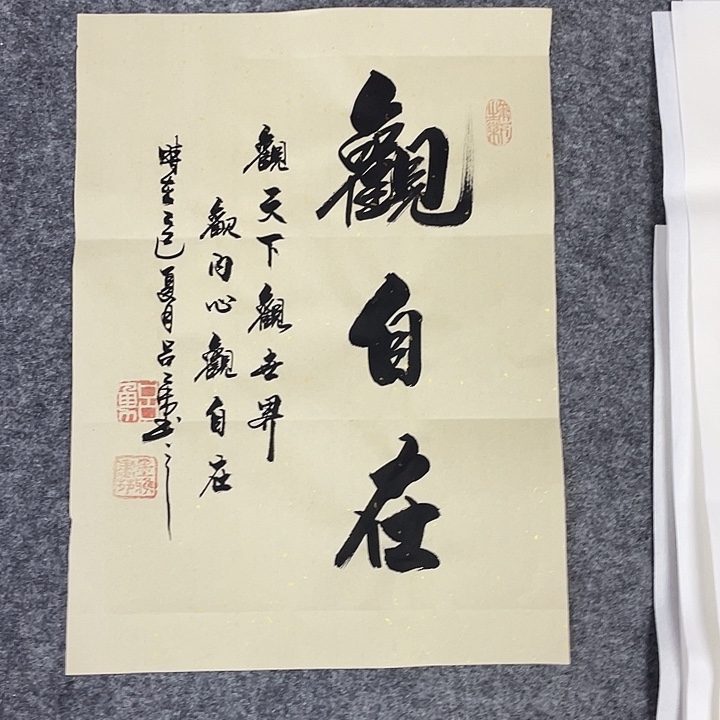 觀自在
觀天下觀世界
觀內心觀自在
時在乙巳夏月呂
書